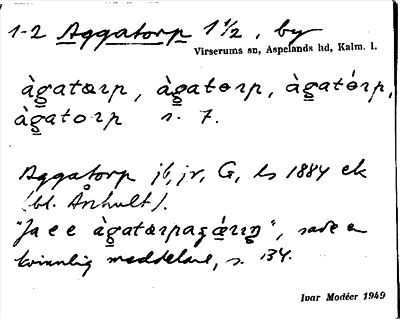 1-2 Aggatorp 1 1/2, by
Virserums sn, Aspelands hd, Kalm. l.
àgatɵrp, àgatɵrp, àgatórp,
àgatorp s. 7.
Aggatorp jb, jr, G, ls 1884 ek
(bl. Århult).
"Ja e e àgatɵrpa", sade en
kvinnlig meddelare, s. 134.
Ivar Modéer 1949